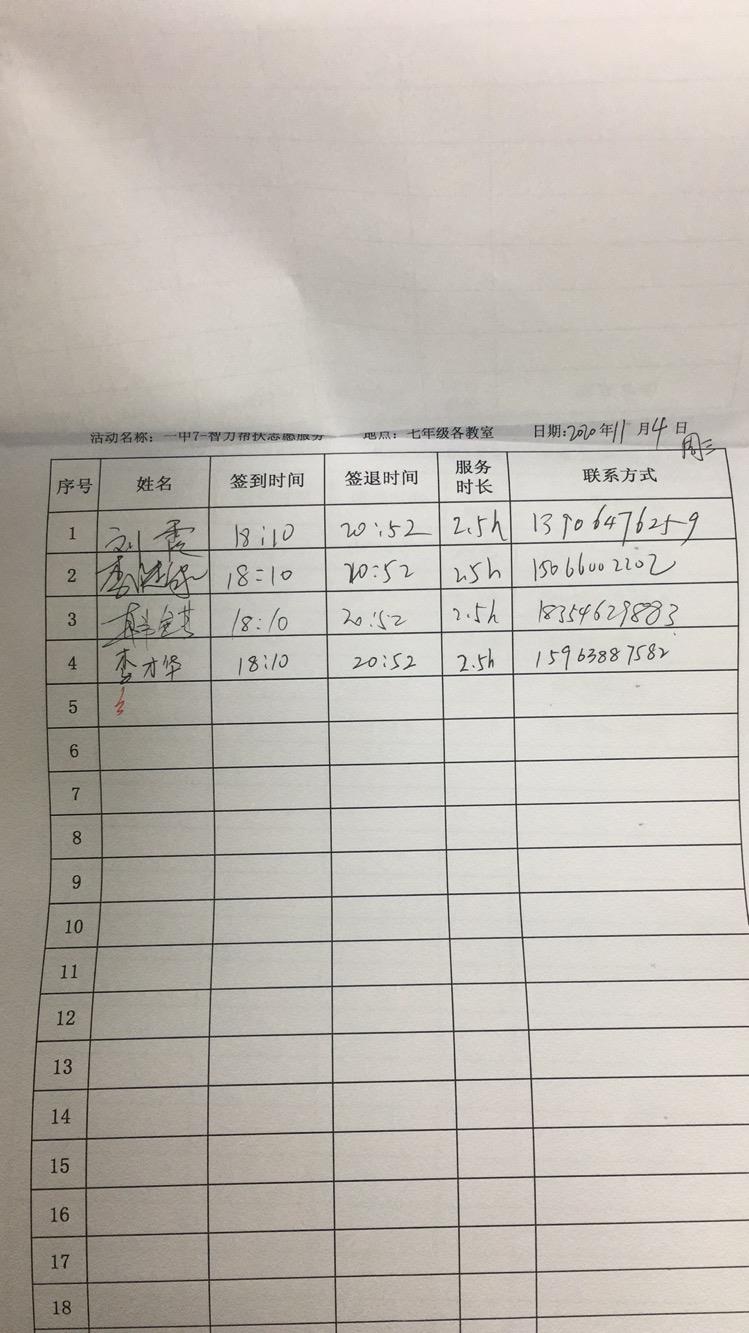 活动名称：一中7-智力帮扶志愿服务 地点：七年级各教室 日期:2020年11月4日
周三
序号 姓名 签到时间 签退时间 服务时长 联系方式
1 刘霞 18:10 20:52 2.5h 13906476259
2 18:10 20:52 2.5h 15066002202
3 18:10 20:52 2.5h 18354629883
4 李才华 18:10 20:52 2.5h 15963887582
5
6
7
8
9
10
11
12
13
14
15
16
17
18